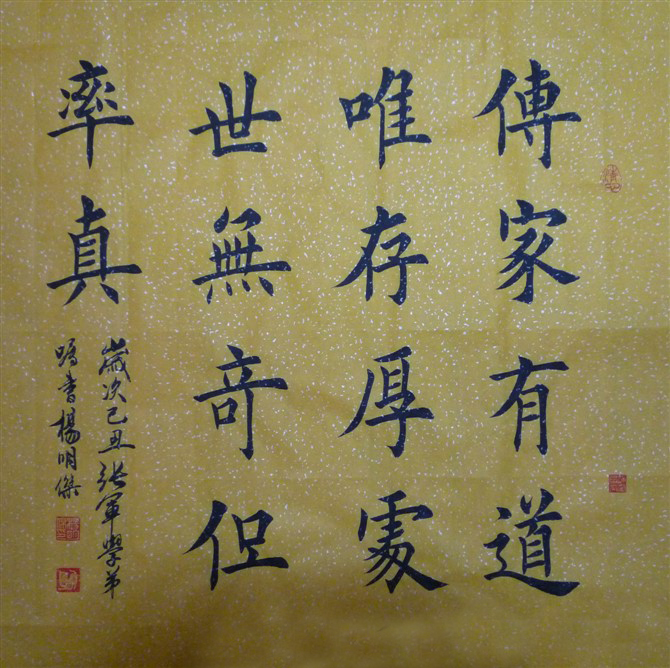 傳家有道
唯存厚處
世無奇但
率真
歲次己丑張軍學弟
囑書楊明傑